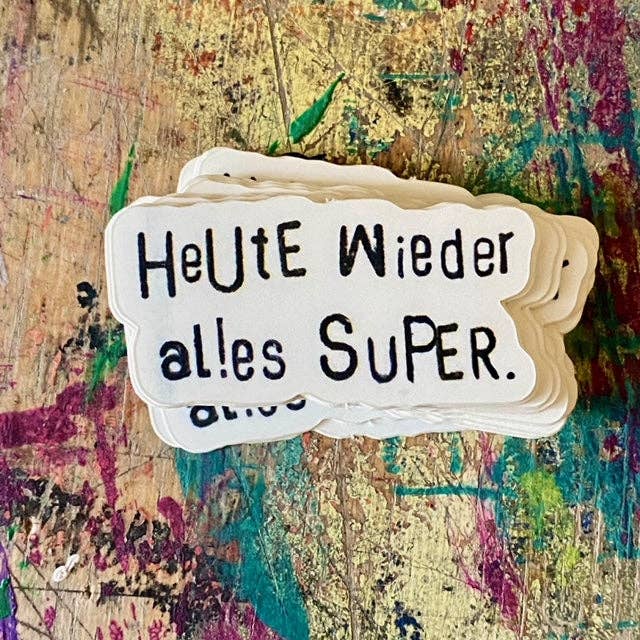 HeUtE Wieder
al!es SuPER.